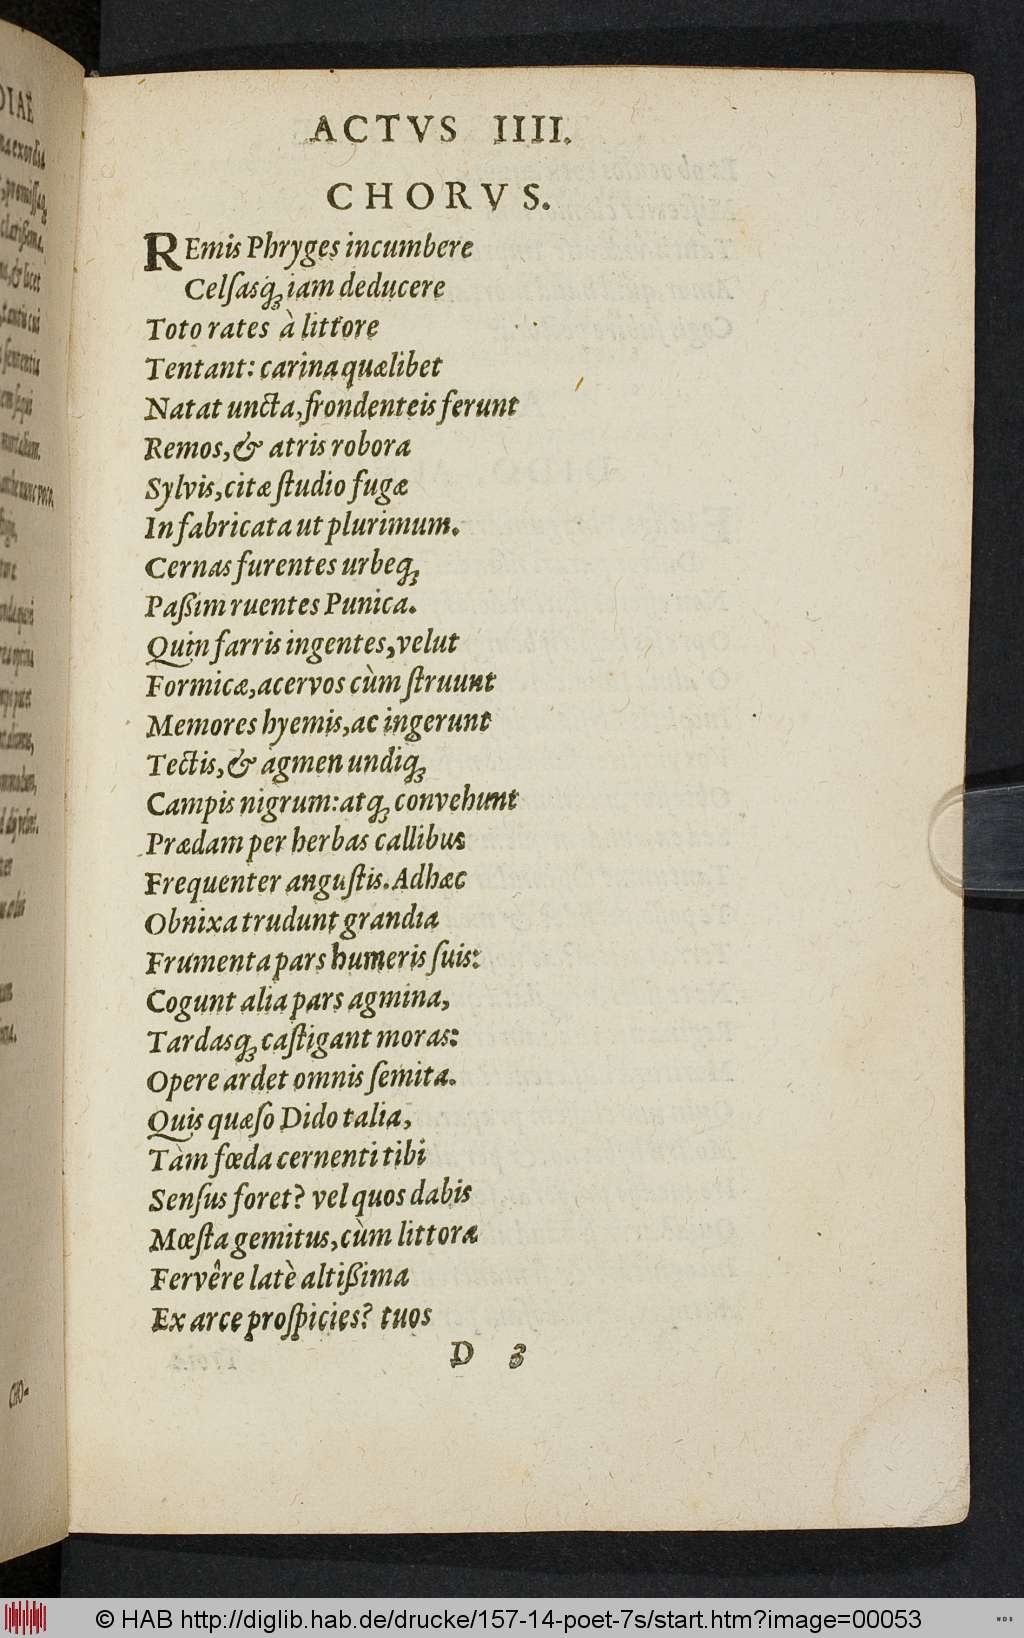 ACTVS IIII.
CHORVS.
REmis Phryges incumbere
Celſasq́ꝫ iam deducere
Toto rates à littore
Tentant: carina quælibet
Natat uncta, frondenteis ferunt
Remos, & atris robora
Sylvis, citæ ſtudio fugæ
Infabricata ut plurimum.
Cernas furentes urbeq́ꝫ
Paßim ruentes Punica.
Quin farris ingentes, velut
Formicæ, acervos cùm ſtruunt
Memores hyemis, ac ingerunt
Tectis, & agmen undiq́ꝫ
Campis nigrum: atq́ꝫ convehunt
Prædam per herbas callibus
Frequenter anguſtis. Adhæc
Obnixa trudunt grandia
Frumenta pars humeris ſuis:
Cogunt alia pars agmina,
Tardasq́ꝫ caſtigant moras:
Opere ardet omnis ſemita.
Quis quæſo Dido talia,
Tàm fœda cernenti tibi
Senſus foret? vel quos dabis
Mœſta gemitus, cùm littora
Fervêre latè altißima
Ex arce proſpicies? tuos
D 3
© HAB http://diglib.hab.de/drucke/157-14-poet-7s/start.htm?image=00053